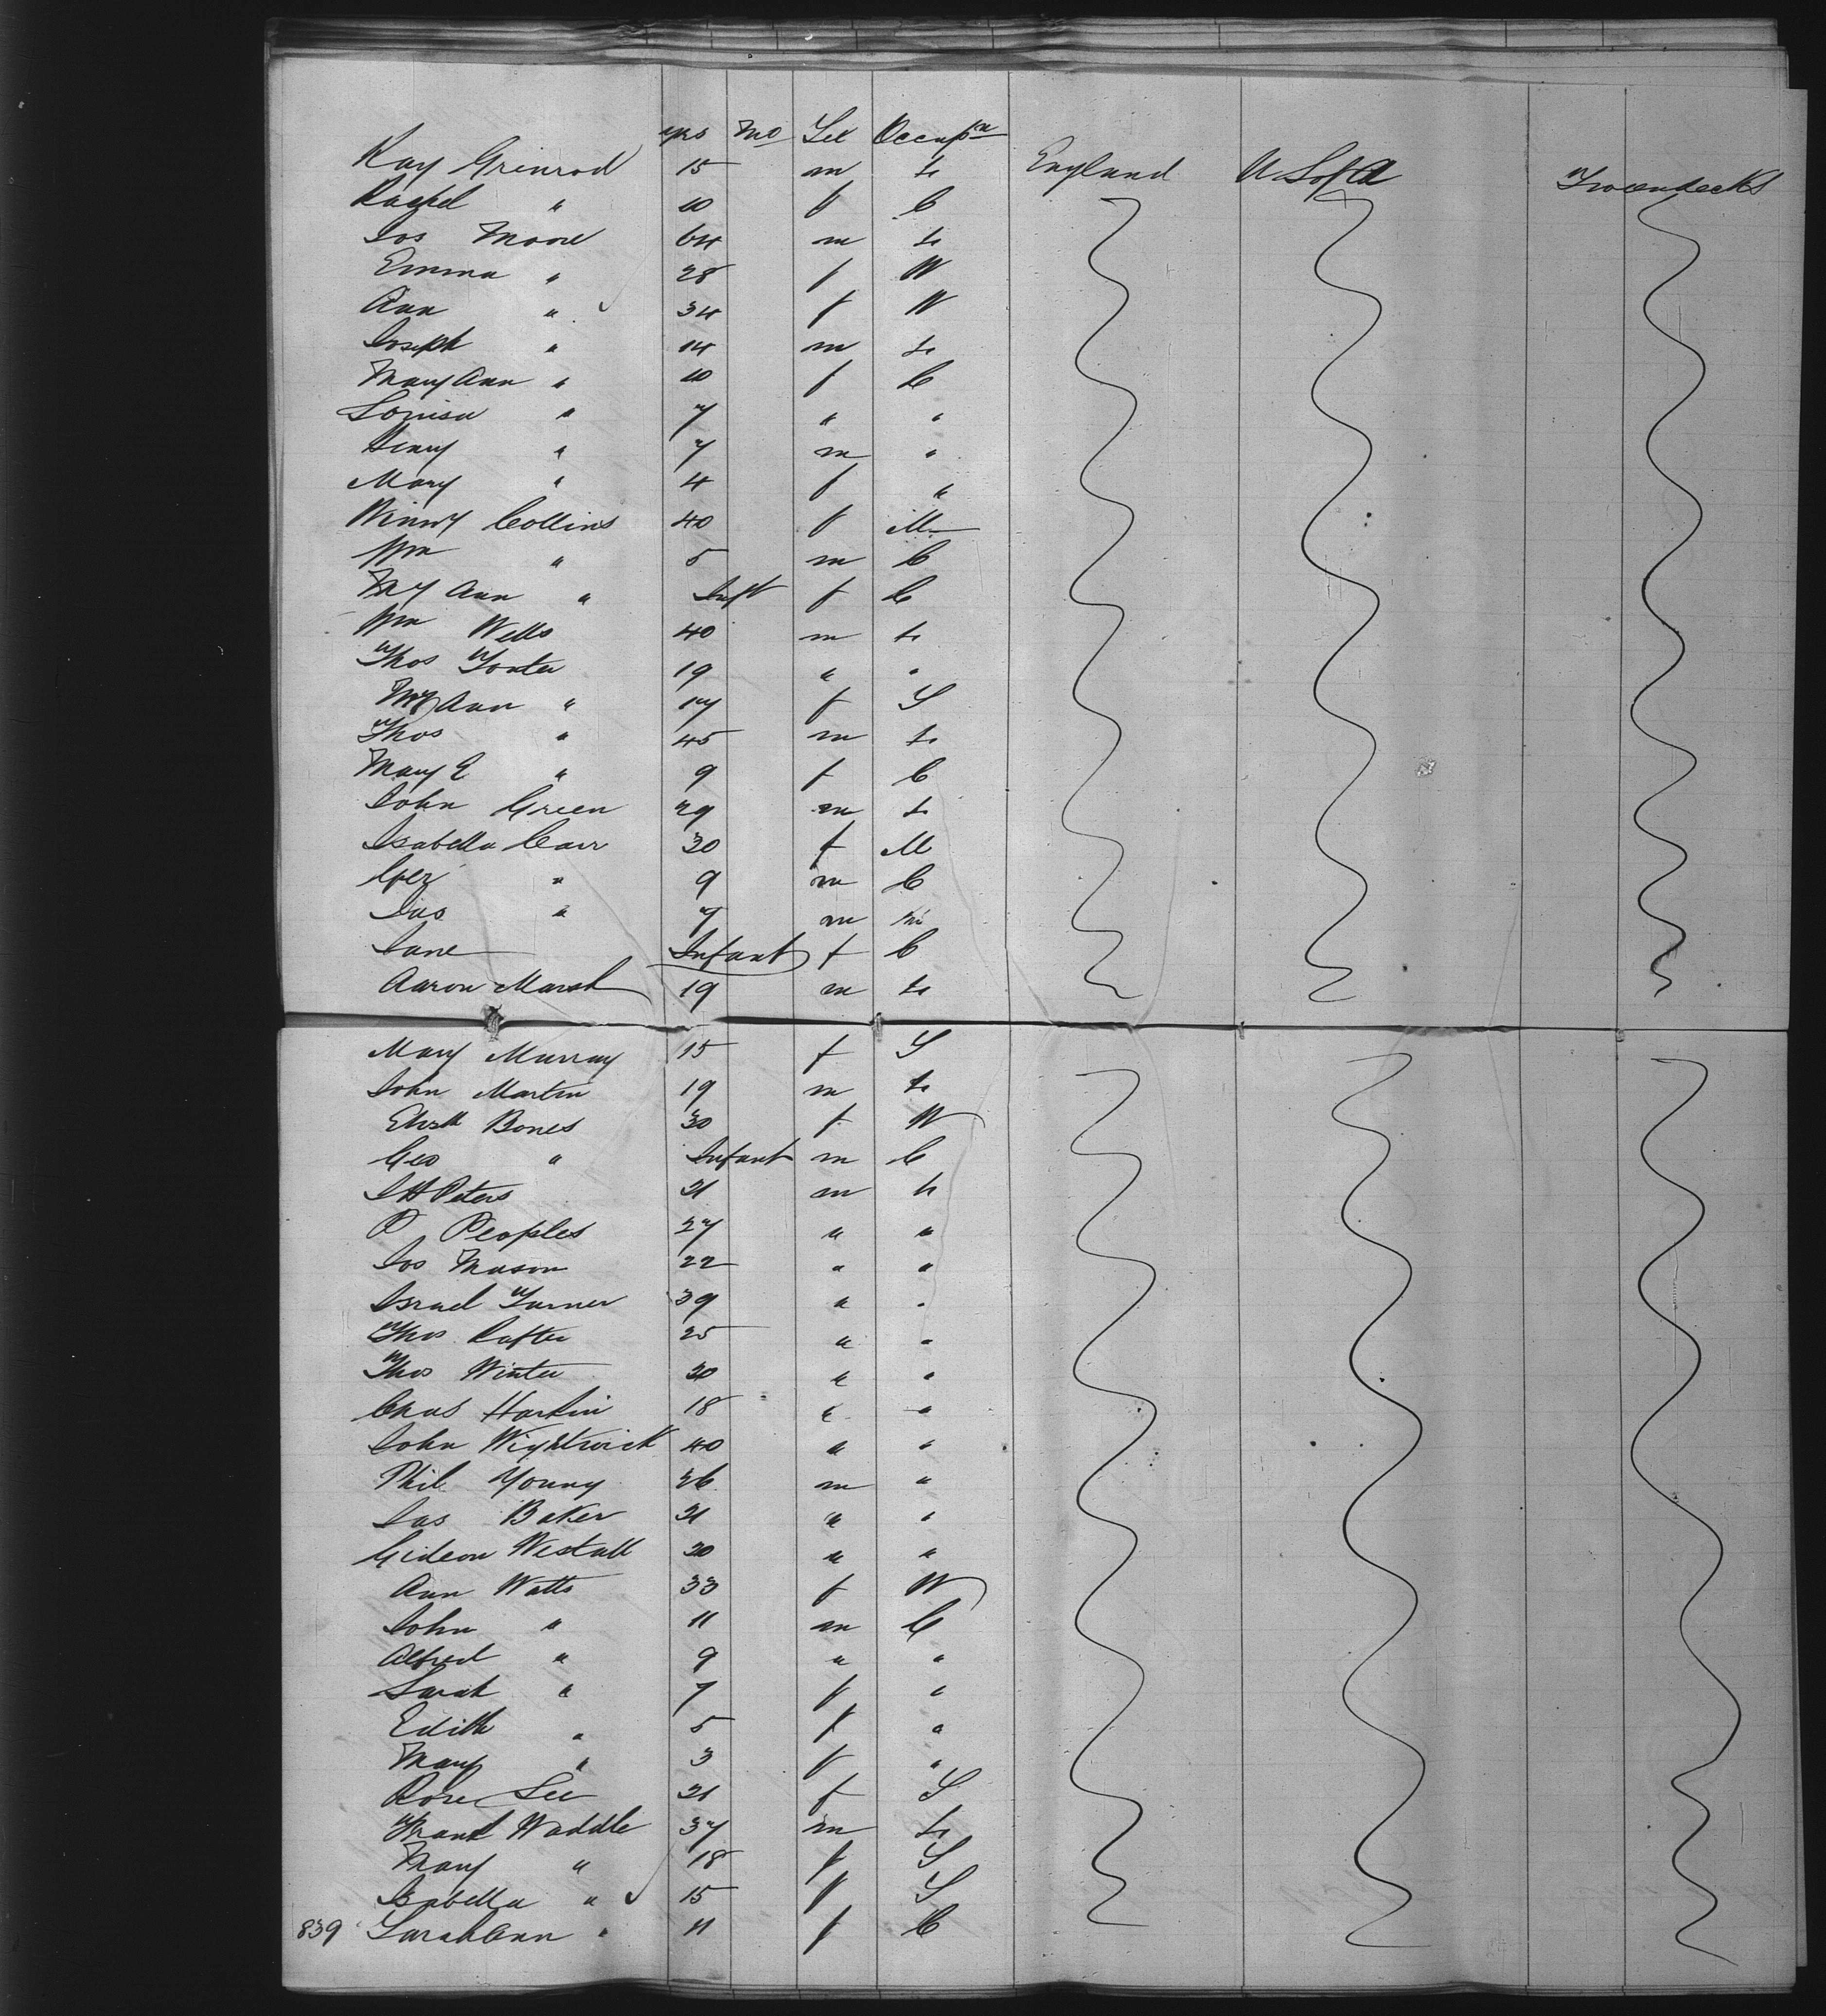 yrs Mo Sex Occupn
Kay Grinrod 15 m Lr England U S of A Tweendecks
Rachel " 10 f C
Jos Moore 64 m Lr
Emma " 28 f W
Ann " 34 f W
Joseph " 14 m Lr
Mary Ann " 10 f C
Louisa " 7 " "
Henry " 7 m "
Mary " 4 f "
Winny Collins 40 f M
Wm " 5 m C
My Ann " Inft f C
Wm Wells 40 m Lr
Thos 19 " "
My Ann " 17 f S
Thos " 45 m Lr
Mary E " 9 f C
John Green 29 m Lr
Isabella Carr 30 f M
" 9 m C
Jas " 7 m
Jane Infant f C
Aaron Marsh 19 m Lr
Mary Murray 15 f S
John Martin 19 m Lr
Elizth Bones 30 f W
Geo " Infant m C
J H Peters 21 m Lr
P Peoples 27 " "
Jos Mason 22 " "
Israel Turner 39 " "
Thos Rafter 25 " "
Thos Winter 20 " "
Chas Harkin 18 " "
John Wightwick 40 " "
Phil Young 26 m "
Jas Baker 21 " "
Gideon Westall 20 " "
Ann Watts 33 f W
John " 11 m C
Alfred " 9 " "
Sarah " 7 f "
Edith " 5 f "
Mary " 3 f "
Rose Lee 21 f S
Frank Waddle 37 m Lr
Mary " 18 f S
Isabella " 15 f S
839 Sarah Ann " 11 f C